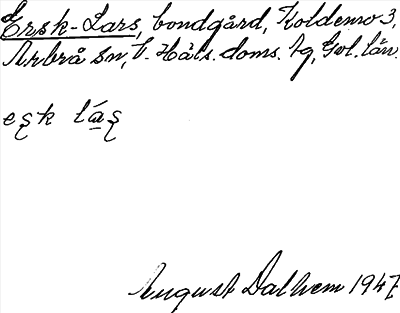 Ersk-Lars, bondgård, Koldemo 3,
Arbrå sn, V. Häls. doms. tg, Gvl. län.
eşk lá̱ş
August Dalhem 1947